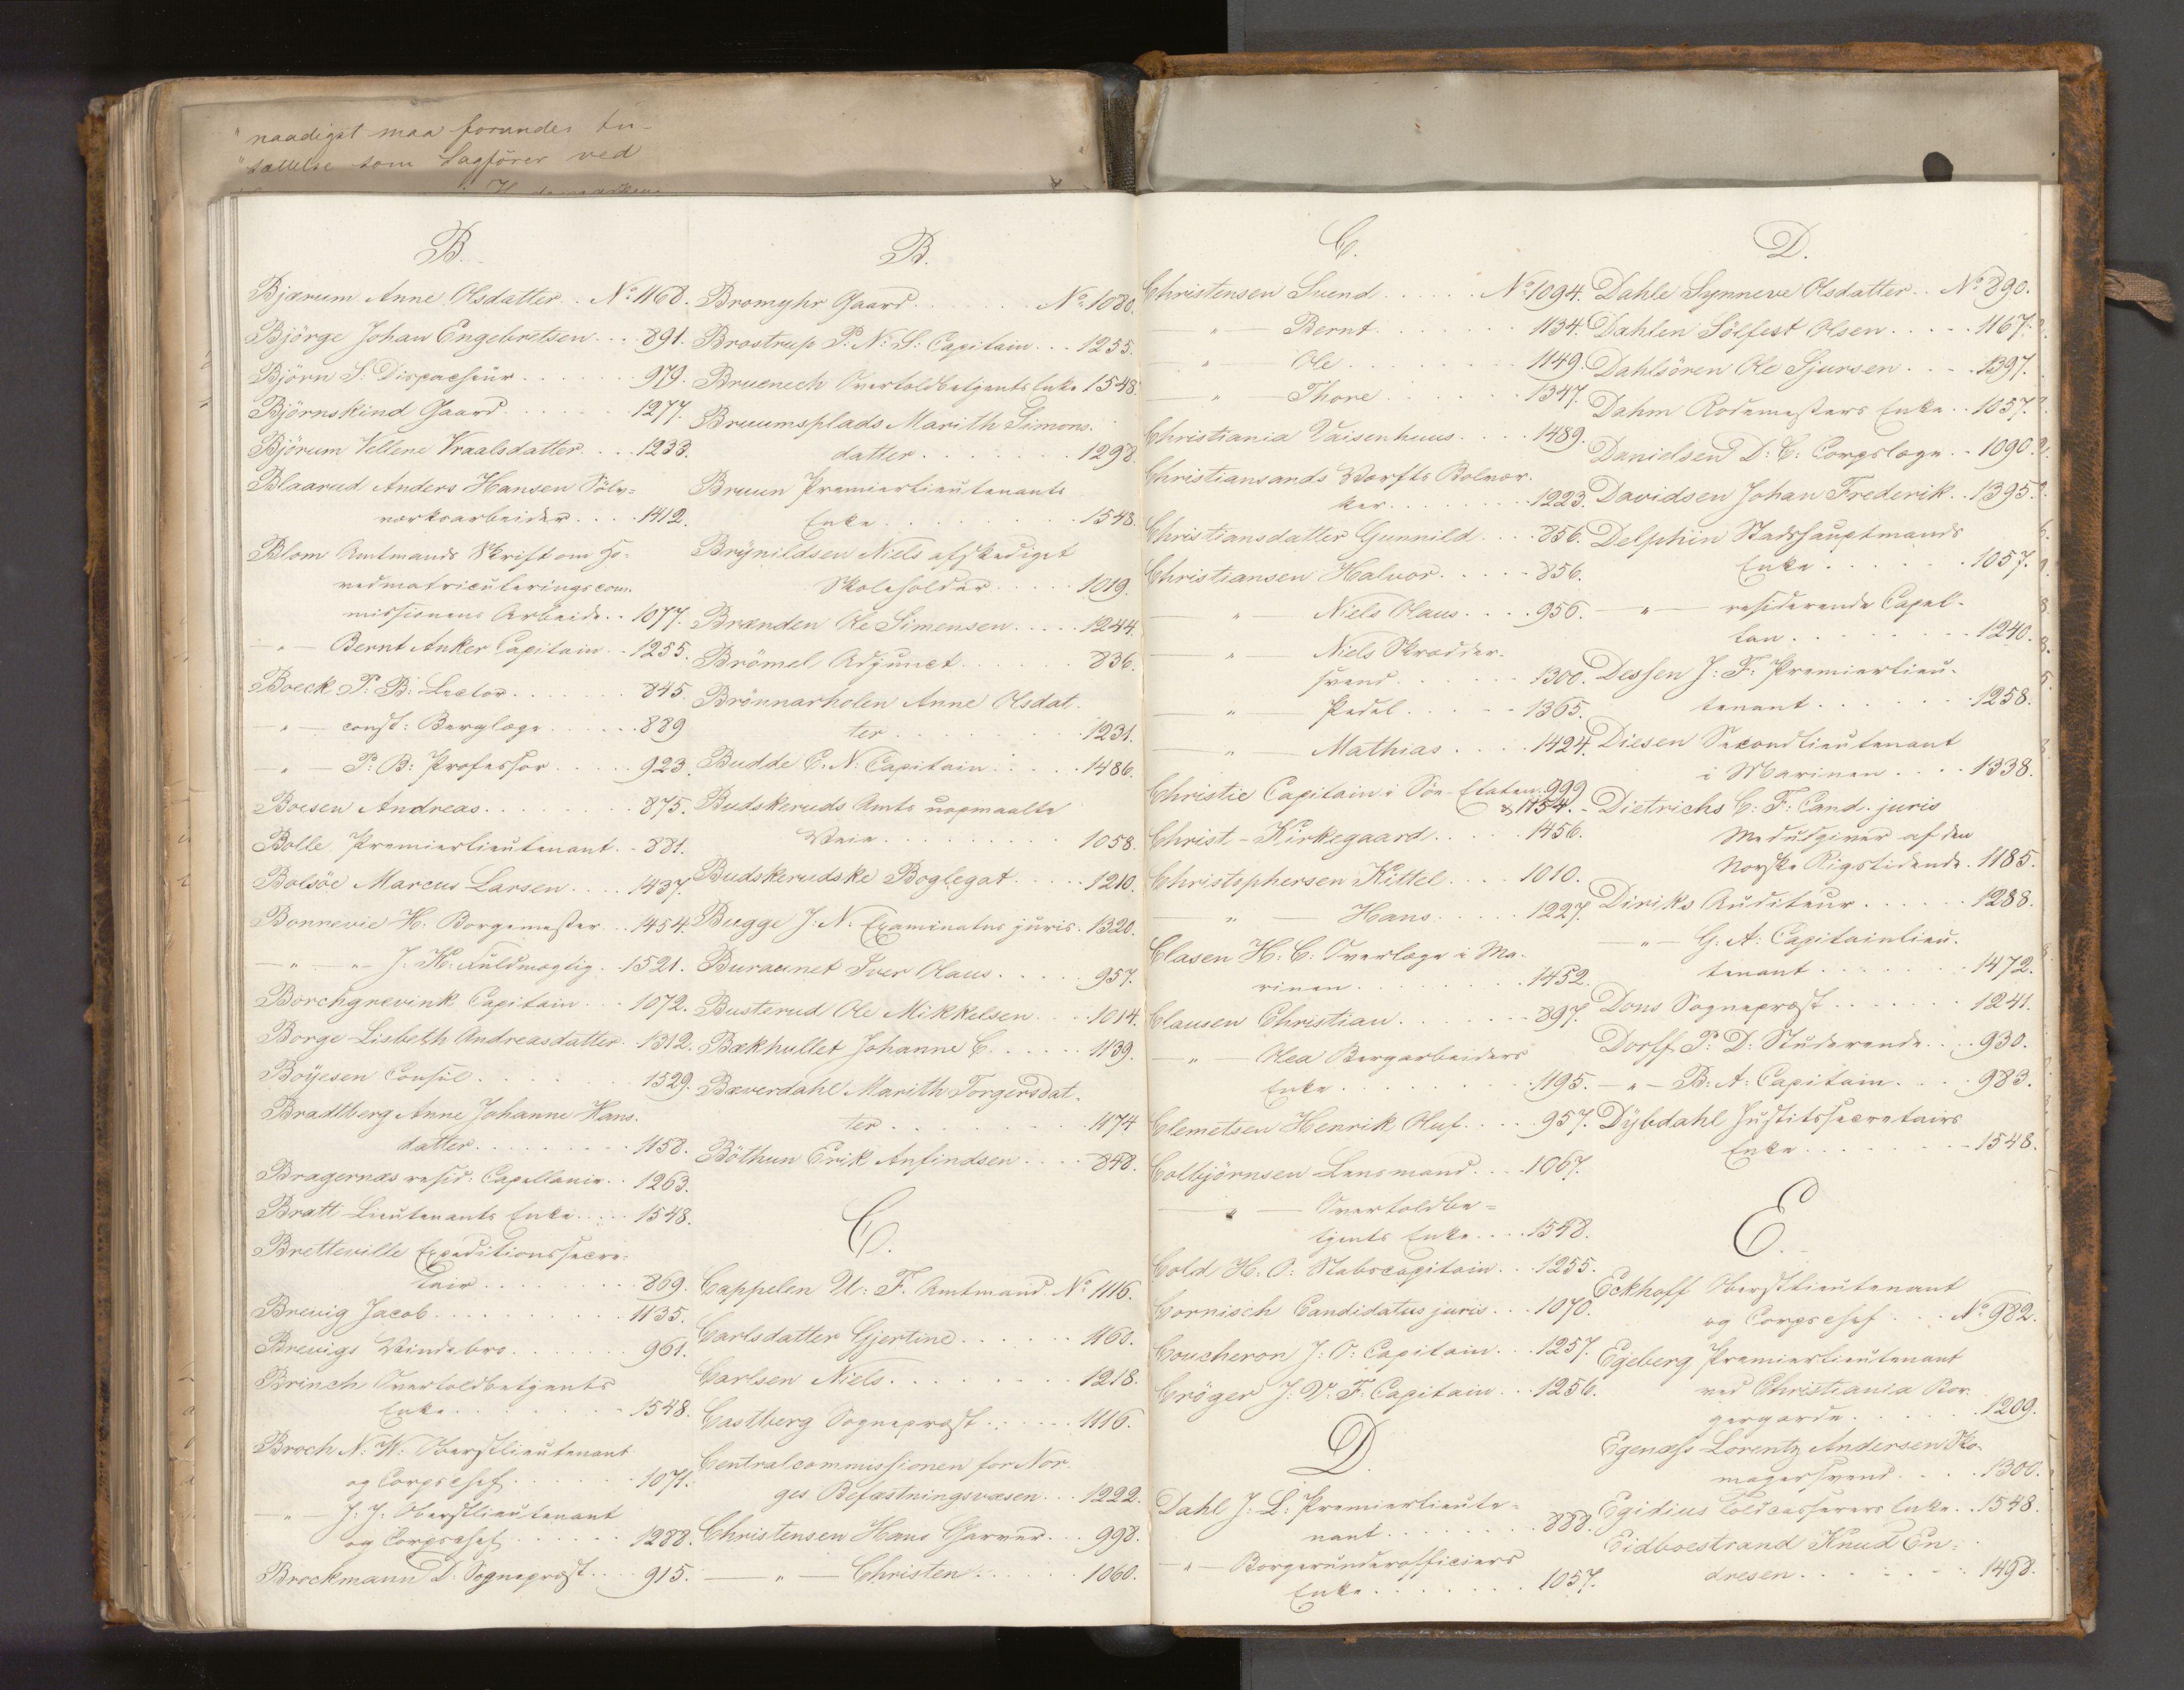 "naadigst maa forundes An-
"sættelse som Sagfører ved
B.
Bjærum Anne Olsdatter . . No 1168.
Björge Johan Engebretsen . . . 891.
Björn S: Dispacheur . . . . . . 979.
Björnskind Gaard . . . . . . 1277.
Björum Vellene Vraalsdatter . . . 1233.
Blaarud Anders Hansen Sölv=
værksarbeider . . . . 1412.
Blom Amtmands Skrift om Ho=
vedmatriculeringscom-
missionens Arbeide . . 1077.
—„— Bernt Anker Capitain . . 1255.
Boeck P: B: Lector . . . . . . 845.
—„— const: Berglæge . . . . . . 889
—„— P: B: Professor . . . . . 923.
Boesen Andreas . . . . . . . 875.
Bolle Premierlieutenant . . 881.
Bolsöe Marcus Larsen . . . . 1437.
Bonnevie H: Borgemester . . 1454.
—„—„— J: K: Fuldmægtig . 1521.
Borchgrevink Capitain . . . 1072.
Borge Lisbeth Andreasdatter . 1312.
Boÿesen Consul . . . . . . . 1529.
Bradtberg Anne Johanne Hans-
datter . . . . . . . . 1158.
Bragernæs resid: Capellanie . . 1263.
Bratt Lieutenants Enke . . . . 1548.
Bretteville Expeditionssecre-
tair . . . . . . . . 869.
Brevig Jacob . . . . . . . . . 1135.
Brevigs Vindebro . . . . . . . 961.
Brinch Overtoldbetjents
Enke . . . . . . . . 1548.
Broch N: W: Oberstlieutenant
og Corpschef . . . . . . 1071.
—„— J: J: Oberstlieutenant
og Corpschef . . . . . . 1288.
Brockmann D: Sognepræst . . . 915.
B.
Bromyhr Gaard . . . . . . . No 1080.
Brostrup P: N: S: Capitain . . . 1255.
Bruenech Overtoldbetjents Enke 1548.
Bruumsplads Marith Simons-
datter . . . . . . . . 1298.
Bruun Premierlieutenants
Enke . . . . . . . . . 1548.
Brÿnildsen Niels afskediget
Skoleholder . . . . . 1019.
Brænden Ole Simensen . . . . . 1244.
Brömel Adjunct . . . . . . . 836.
Brönnarholen Anne Olsdat-
ter . . . . . . . . . 1231.
Budde C. N: Capitain . . . . . 1486.
Budskeruds Amts uopmaalte
Veie . . . . . . . . . 1058.
Budskerudske Boglegat . . . . . 1210.
Bugge J: N: Examinatus juris . 1320.
Buraunet Iver Olaus . . . . . 957.
Busterud Ole Mikkelsen . . . . 1014.
Bækhullet Johanne C. . . . . . 1139.
Bæverdahl Marith Torgersdat-
ter . . . . . . . . . 1174
Böthun Erik Anfindsen . . . . 848.
C.
Cappelen U: F. Amtmand No 1116.
Carlsdatter Gjertine . . . . . . 1160.
Carlsen Niels . . . . . . . . . 1218.
Castberg Sognepræst . . . . . . 1116.
Centralcommissionen for Nor-
ges Befæstningsvæsen . . . 1222.
Christensen Hans Garver . . . 998.
—„— Christen . . . . . . 1060.
C.
Christensen Svend . . . . . . No 1094.
—„— Bernt . . . . . . . . 1134.
—„— Ole . . . . . . . . . 1149.
—„— Thore . . . . . . . 1347.
Christiania Vaisenhuus . . . . 1489.
Christiansands Værfts Bolvær-
ker . . . . . . . . 1223.
Christiansdatter Gunnild . . . . 856.
Christiansen Halvor . . . . . 856.
—„— Niels Olaus . . . . 956.
—„— Niels Skrædder-
svend . . . . . . 1300.
—„— Pedel . . . . . 1365.
—„— Mathias . . . . 1424.
Christie Capitain i Söe-Etaten 999
& 1154.
Christ-Kirkegaard . . . . . 1456.
Christophersen Kittel . . . . 1010.
—„— Hans . . . . . 1227.
Clasen H: C: Overlæge i Ma-
rinen . . . . . . . . 1452.
Clausen Christian . . . . . . . 897.
—„— Olea Bergarbeiders
Enke . . . . . . . . . 1195.
Clemetsen Henrik Oluf . . . . 957.
Colbjörnsen Lensmand . . . . 1067.
—„— Overtoldbe=
tjents Enke . . . . 1548.
Cold H: O: Stabscapitain . . . 1255.
Cornisch Candidatus juris . . . 1070.
Coucheron J: O: Capitain . . . 1257.
Cröger J: V: F: Capitain . . . 1256.
D
Dahl J: L: Premierlieute=
nant . . . . . . . . 888.
—„— Borgerunderofficiers
Enke . . . . . . . . 1057.
D.
Dahle Synneve Olsdatter . . No 890.
Dahlen Sölfest Olsen . . . . . 1167.
Dahlsören Ole Sjursen . . . . 1397.
Dahm Rodemesters Enke . . 1057.
Danielsen D: C: Corpslæge . . 1090.
Davidsen Johan Frederik . . 1395.
Delphin Stadshauptmands
Enke . . . . . . . 1057.
—„— residerende Capel-
lan . . . . . . . . . 1240.
Dessen J: F: Premierlieu-
tenant . . . . . . . 1258.
Diesen Secondlieutenant
i Marinen . . . . 1338.
Dietrichs C: F: Cand. juris
Medudgiver af den
Norske Rigstidende . 1185.
Diriks Auditeur . . . . . . 1288.
—„— G: A: Capitainlieu-
tenant . . . . . . . 1472.
Dons Sognepræst . . . . . . . 1241.
Dorff P: D: Studerende . . . 930.
—„— B: A: Capitain . . . . 983.
Dÿbdahl Justitssecretairs
Enke . . . . . . . . 1548.
E.
Eckhoff Oberstlieutenant
og Corpschef . . . No 982.
Egeberg Premierlieutenant
ved Christiania Bor-
gergarde . . . . . . 1209.
Egenæss Lorentz Andersen Sko-
magersvend . . . . 1300.
Egidius Toldcasserers Enke . . 1548.
Eidboestrand Knud En-
dresen . . . . . . . 1498.